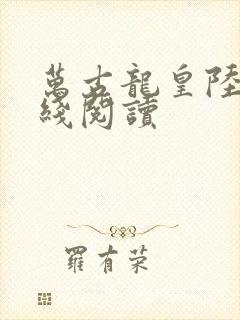 萬古龍皇陸
綫閱讀
羅有荣